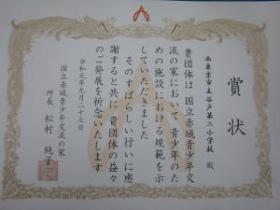 賞状
西東京市立谷戸第二小学校 殿
貴団体は国立赤城青少年交
流の家において青少年のた
めの施設における規範を示
していただきました
そのすばらしい行いに感
謝すると共に貴団体の益々
のご発展を祈念いたします
令和元年九月二十七日
国立赤城青少年交流の家
所長 松村純子